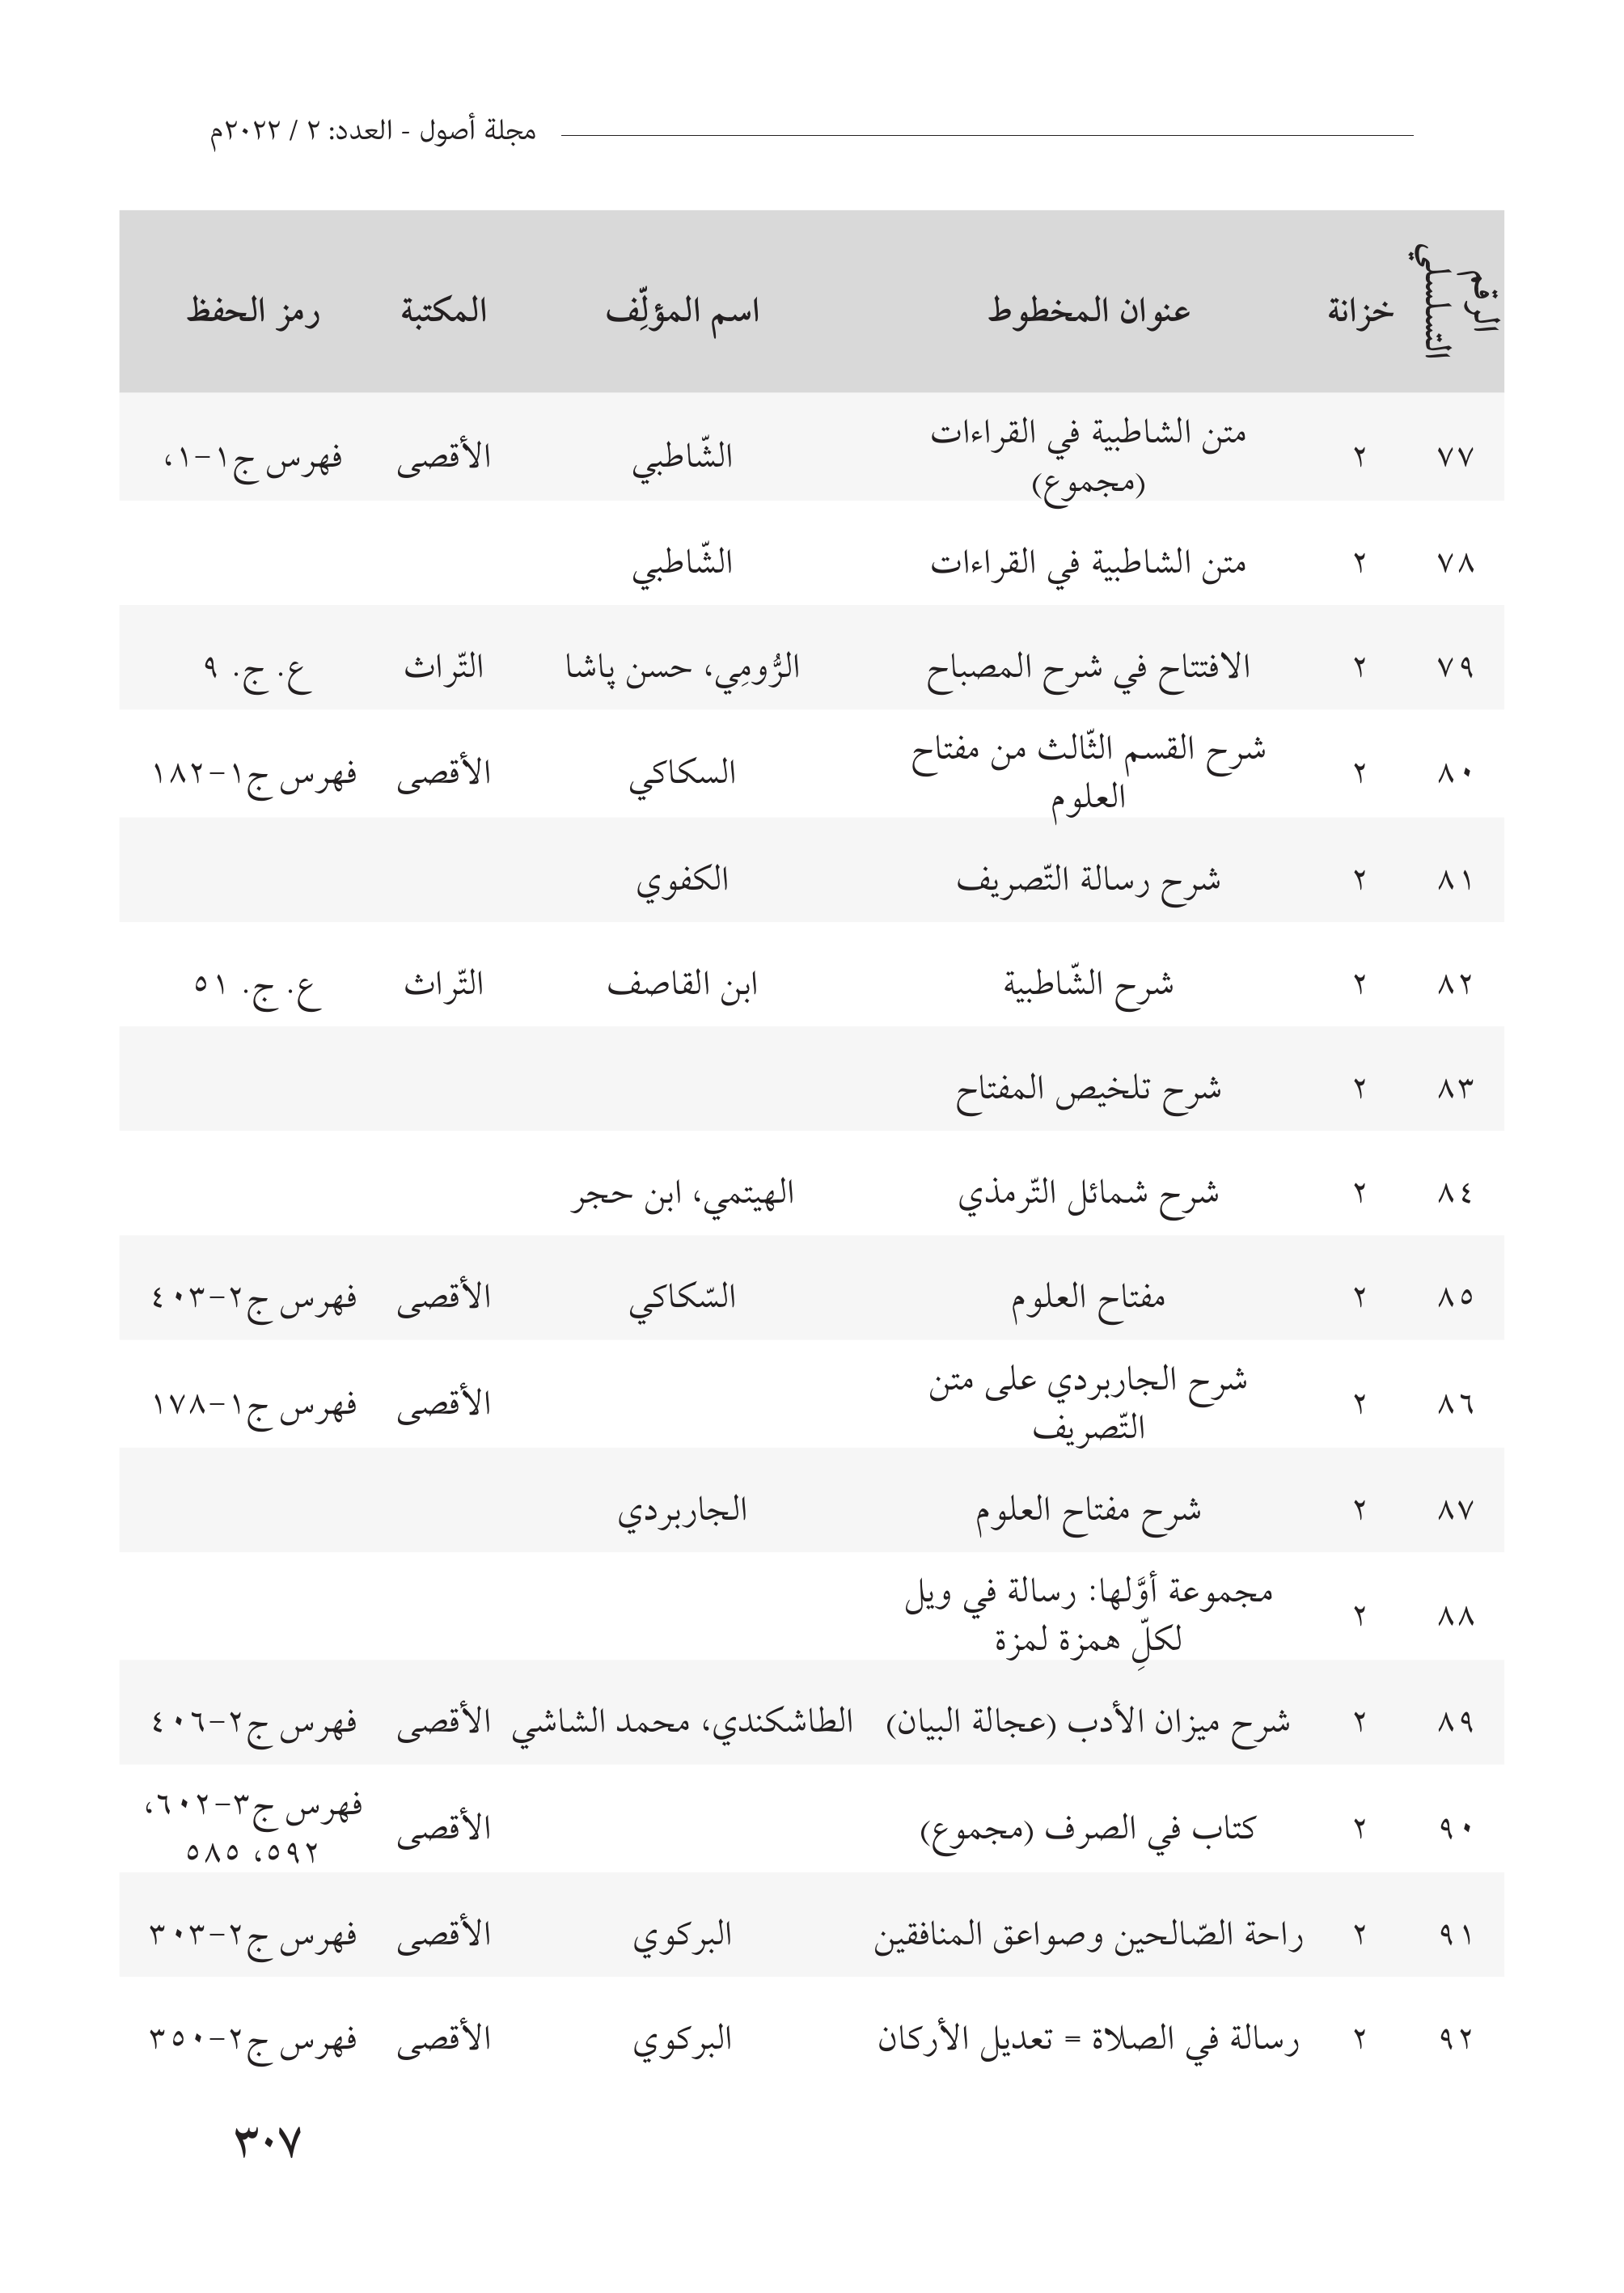 مجلة أصول - العدد: ٢ / ٢٠٢٢م
الرقم التسلسلي خزانة عنوان المخطوط اسم المؤلِّف المكتبة رمز الحفظ
٧٧ ٢ متن الشاطبية في القراءات (مجموع) الشّاطبي الأقصى فهرس ج١-١،
٧٨ ٢ متن الشاطبية في القراءات الشّاطبي
٧٩ ٢ الافتتاح في شرح المصباح الرُّومِي، حسن پاشا التّراث ع. ج. ٩
٨٠ ٢ شرح القسم الثّالث من مفتاح العلوم السكاكي الأقصى فهرس ج١-١٨٢
٨١ ٢ شرح رسالة التّصريف الكفوي
٨٢ ٢ شرح الشّاطبية ابن القاصف التّراث ع. ج. ٥١
٨٣ ٢ شرح تلخيص المفتاح
٨٤ ٢ شرح شمائل التّرمذي الهيتمي، ابن حجر
٨٥ ٢ مفتاح العلوم السّكاكي الأقصى فهرس ج٢-٤٠٣
٨٦ ٢ شرح الجاربردي على متن التّصريف الأقصى فهرس ج١-١٧٨
٨٧ ٢ شرح مفتاح العلوم الجاربردي
٨٨ ٢ مجموعة أوَّلها: رسالة في ويل لكلِّ همزة لمزة
٨٩ ٢ شرح ميزان الأدب (عجالة البيان) الطاشكندي، محمد الشاشي الأقصى فهرس ج٢-٤٠٦
٩٠ ٢ كتاب في الصرف (مجموع) الأقصى فهرس ج٣-٦٠٢، ٥٩٢، ٥٨٥
٩١ ٢ راحة الصّالحين وصواعق المنافقين البركوي الأقصى فهرس ج٢-٣٠٣
٩٢ ٢ رسالة في الصلاة = تعديل الأركان البركوي الأقصى فهرس ج٢-٣٥٠
٣٠٧